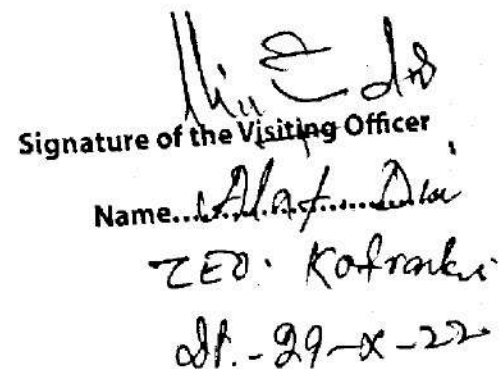 Signature of the Visiting Officer
Name..Altaf....Din
ZEO. Kotranka
Dt. - 29-X-22